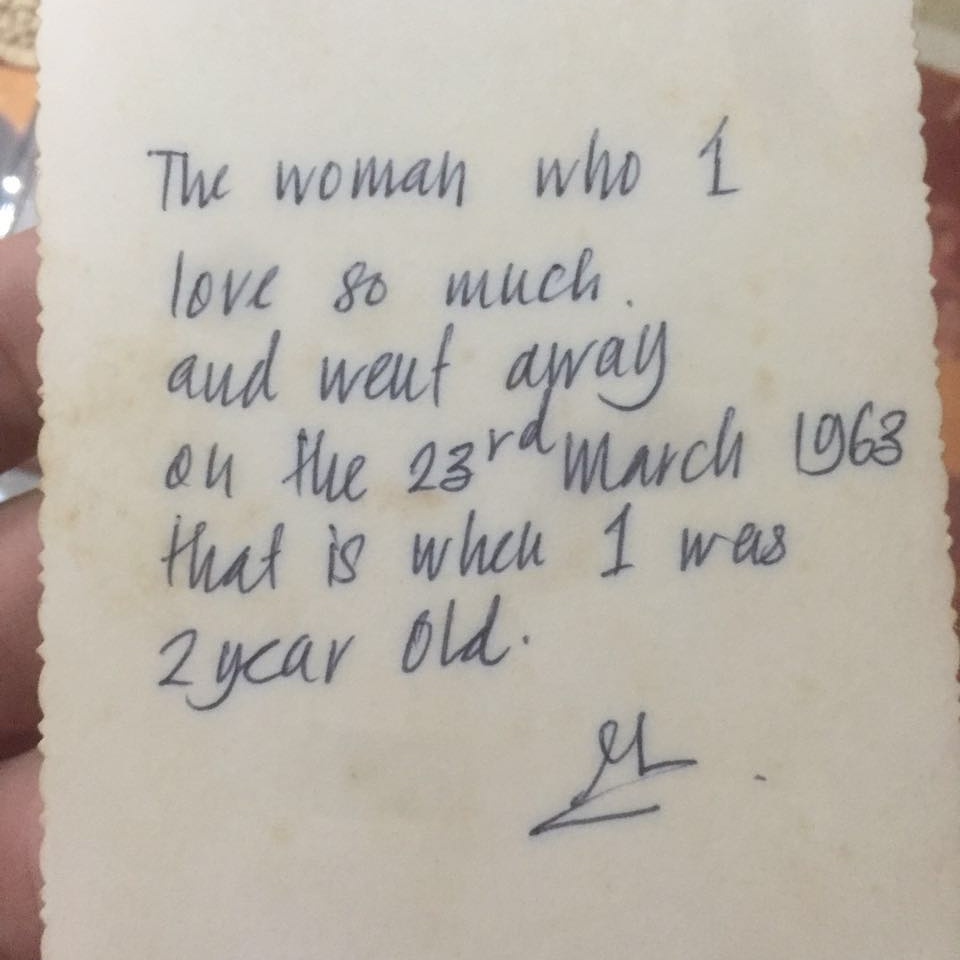 The woman who I
love so much.
and went away
on the 23rd March 1963
that is when I was
2 year old.